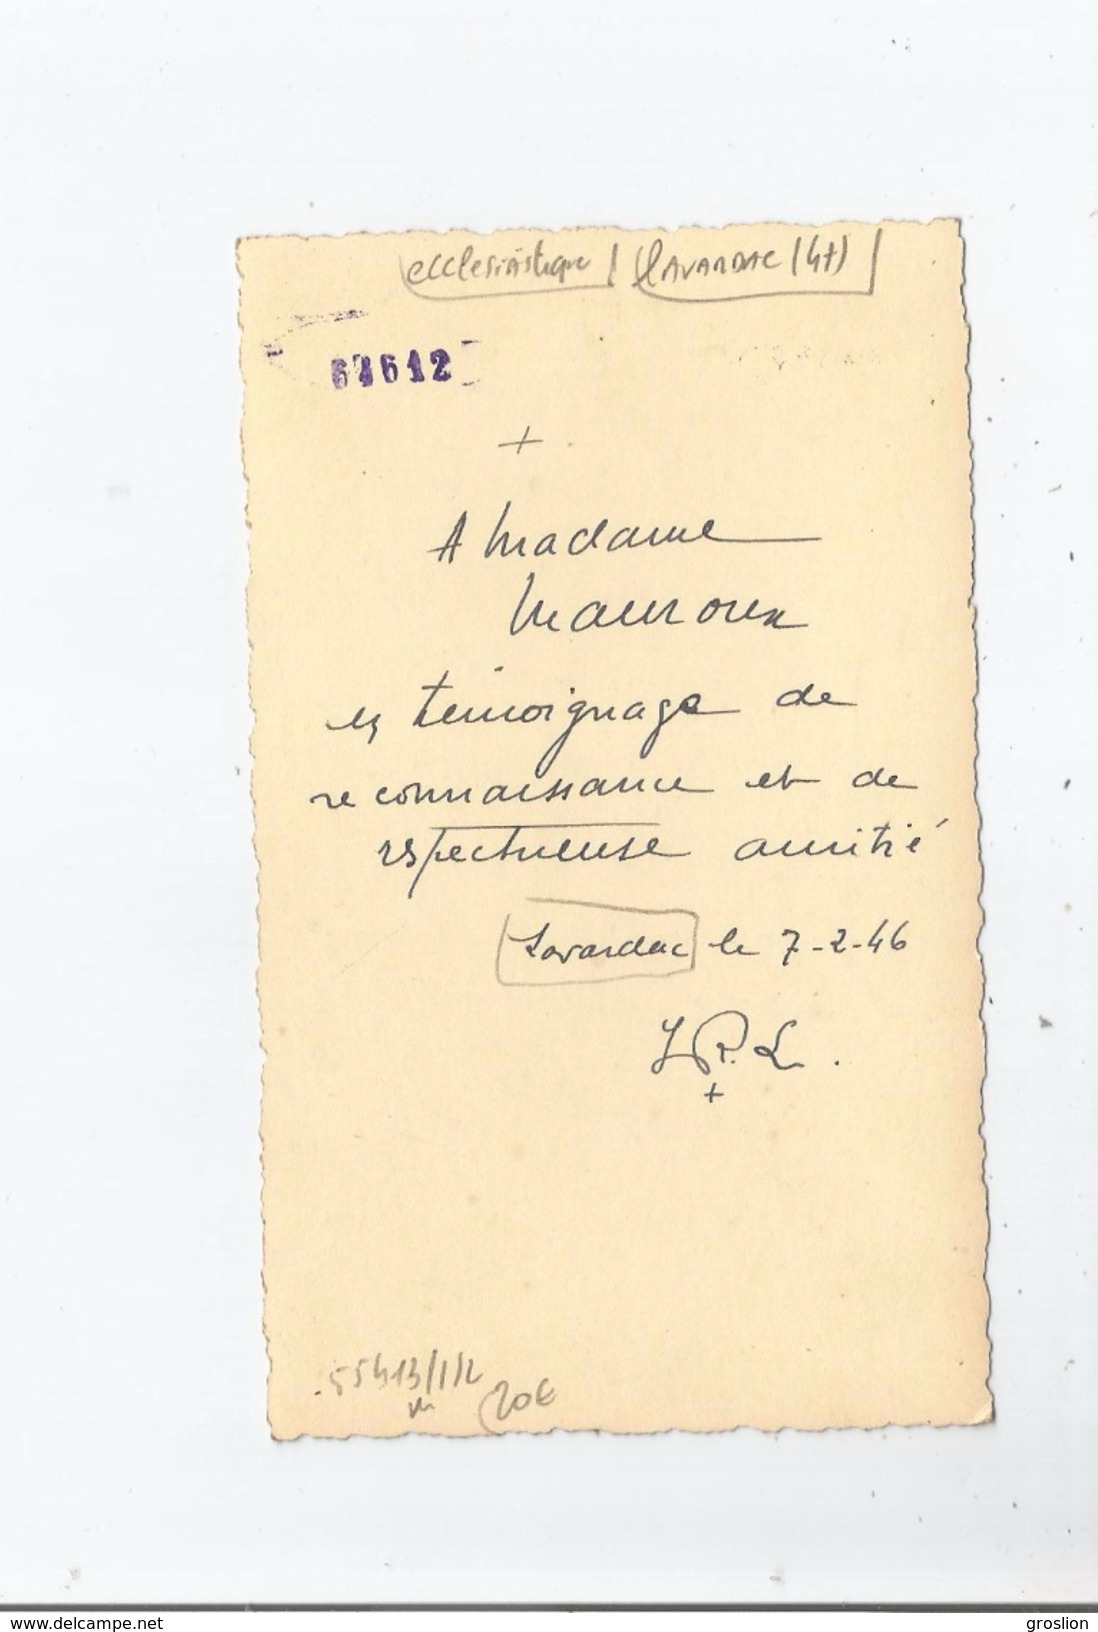 ecclesiastique / LAVARDAC (47)
67612
+
A Madame
Mauroux
en témoignage de
reconnaissance et de
respectueuse amitié
Lavardac le 7-2-46
+
20€
www.delcampe.net
groslion